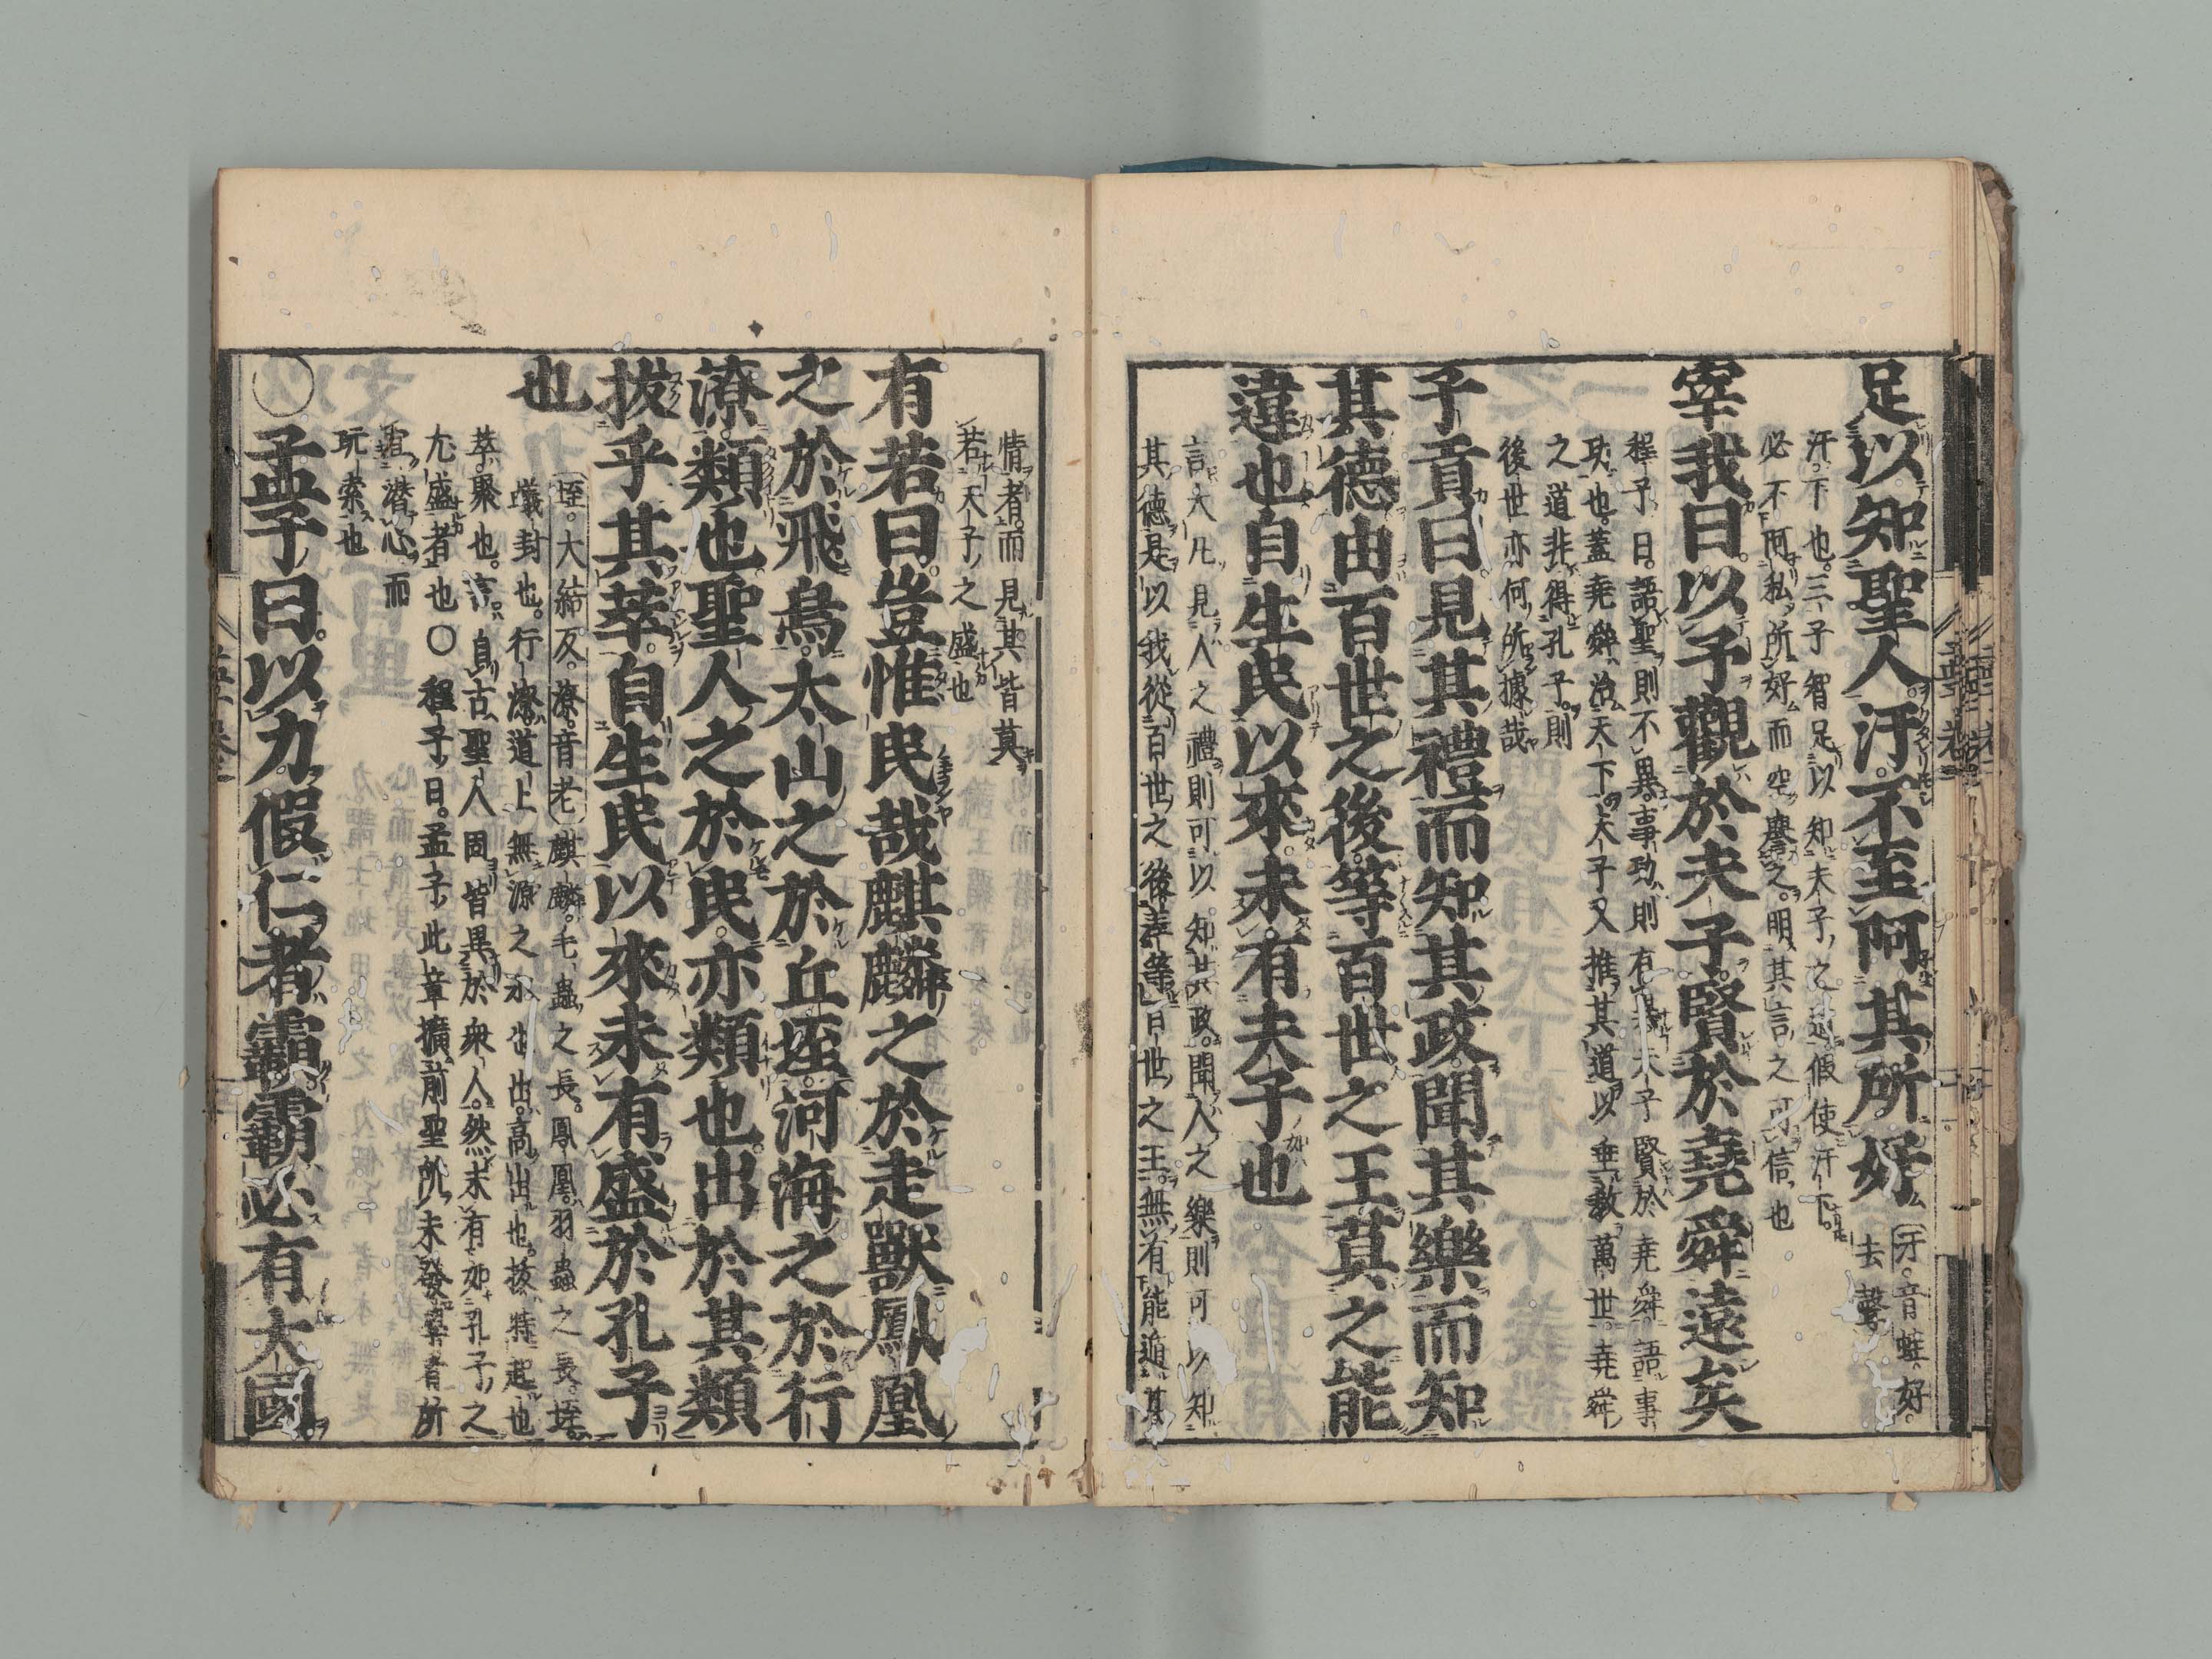 足以知聖人汙不至阿其所好
汙音蛙好
去聲
汙下也三子智足以知夫子之道假使汙下
必不阿私所好而空譽之明其言之可信也
宰我曰以予觀於夫子賢於堯舜遠矣
程子曰語聖則不異事功則有異夫子賢於堯舜語事
功也蓋堯舜治天下夫子又推其道以垂教萬世堯舜
之道非得孔子則
後世亦何所據哉
子貢曰見其禮而知其政聞其樂而知
其德由百世之後等百世之王莫之能
違也自生民以來未有夫子也
言大凡見人之禮則可以知其政聞人之樂則可以知
其德是以我從百世之後差等百世之王無有能遁其
情者而見其皆莫
若夫子之盛也
有若曰豈惟民哉麒麟之於走獸鳳凰
之於飛鳥太山之於丘垤河海之於行
潦類也聖人之於民亦類也出於其類
拔乎其萃自生民以來未有盛於孔子
也
垤大結反潦音老麒麟毛蟲之長鳳凰羽蟲之長垤
蟻封也行潦道上無源之水也出高出也拔特起也
萃聚也言自古聖人固皆異於衆人然未有如孔子之
尤盛者也〇程子曰孟子此章擴前聖所未發學者所
宜潜心而
玩索也
〇孟子曰以力假仁者霸霸必有大國